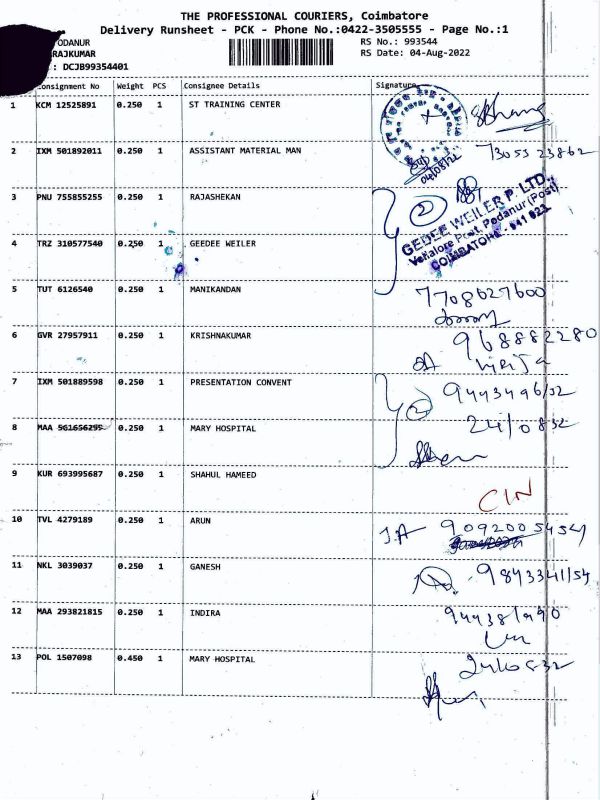 THE PROFESSIONAL COURIERS, Coimbatore
Delivery Runsheet - PCK - Phone No.:0422-3505555 - Page No.:1
ODANUR
RAJKUMAR
: DCJB99354401
RS No.: 993544
RS Date: 04-Aug-2022
onsignment No Weight PCS Consignee Details Signature
1 KCM 12525891 0.250 1 ST TRAINING CENTER
2 IXM 501892011 0.250 1 ASSISTANT MATERIAL MAN 73055 23862
04/08/22
3 PNU 755855255 0.250 1 RAJASHEKAN 2
GEDEE WEILER P. LTD.,
Vellalore Post, Podanur (Post)
COIMBATORE - 641 023
4 TRZ 310577540 0.250 1 GEEDEE WEILER
5 TUT 6126540 0.250 1 MANIKANDAN 7708627600
6 GVR 27957911 0.250 1 KRISHNAKUMAR 968882280
7 IXM 501889598 0.250 1 PRESENTATION CONVENT 2
8 MAA 561656295 0.250 1 MARY HOSPITAL 2410832
9 KUR 693995687 0.250 1 SHAHUL HAMEED CIN
10 TVL 4279189 0.250 1 ARUN
11 NKL 3039037 0.250 1 GANESH 9843341154
12 MAA 293821815 0.250 1 INDIRA
13 POL 1507098 0.450 1 MARY HOSPITAL 2410832